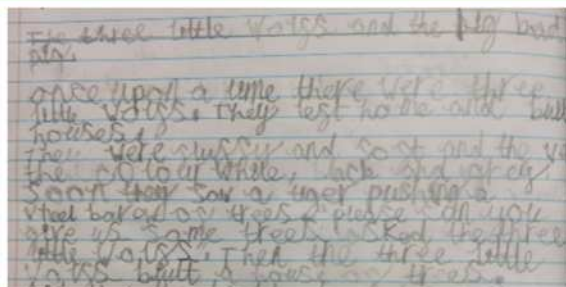 The three little volss and the big bad
pig.
once upon a time there were three
little volss. They lest home and built
houses.
They were slussy and sost and the
the colour while, back and grey.
Soon they saw a tiger pushing a
weel barow os trees. please can you
give us some trees asked the three
little volss. Then the three little
volss built a house os trees.